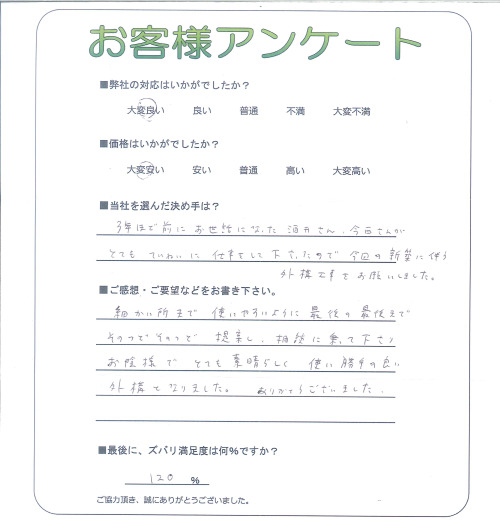 お客様アンケート
■弊社の対応はいかがでしたか？
大変良い 良い 普通 不満 大変不満
■価格はいかがでしたか？
大変安い 安い 普通 高い 大変高い
■当社を選んだ決め手は？
3年ほど前に お世話になった 酒井さん、今日さんが
とても ていねいに 仕事をして下さったので 今回の新築に伴う
外構工事をお願いしました。
■ご感想・ご要望などをお書き下さい。
細かい所まで 使いやすいように 最後の最後まで
そのつどそのつど 提案し、相談に乗って下さり
お陰様で とても素晴らしく 使い勝手の良い
外構となりました。 ありがとうございました。
■最後に、ズバリ満足度は何%ですか？
120 %
ご協力頂き、誠にありがとうございました。